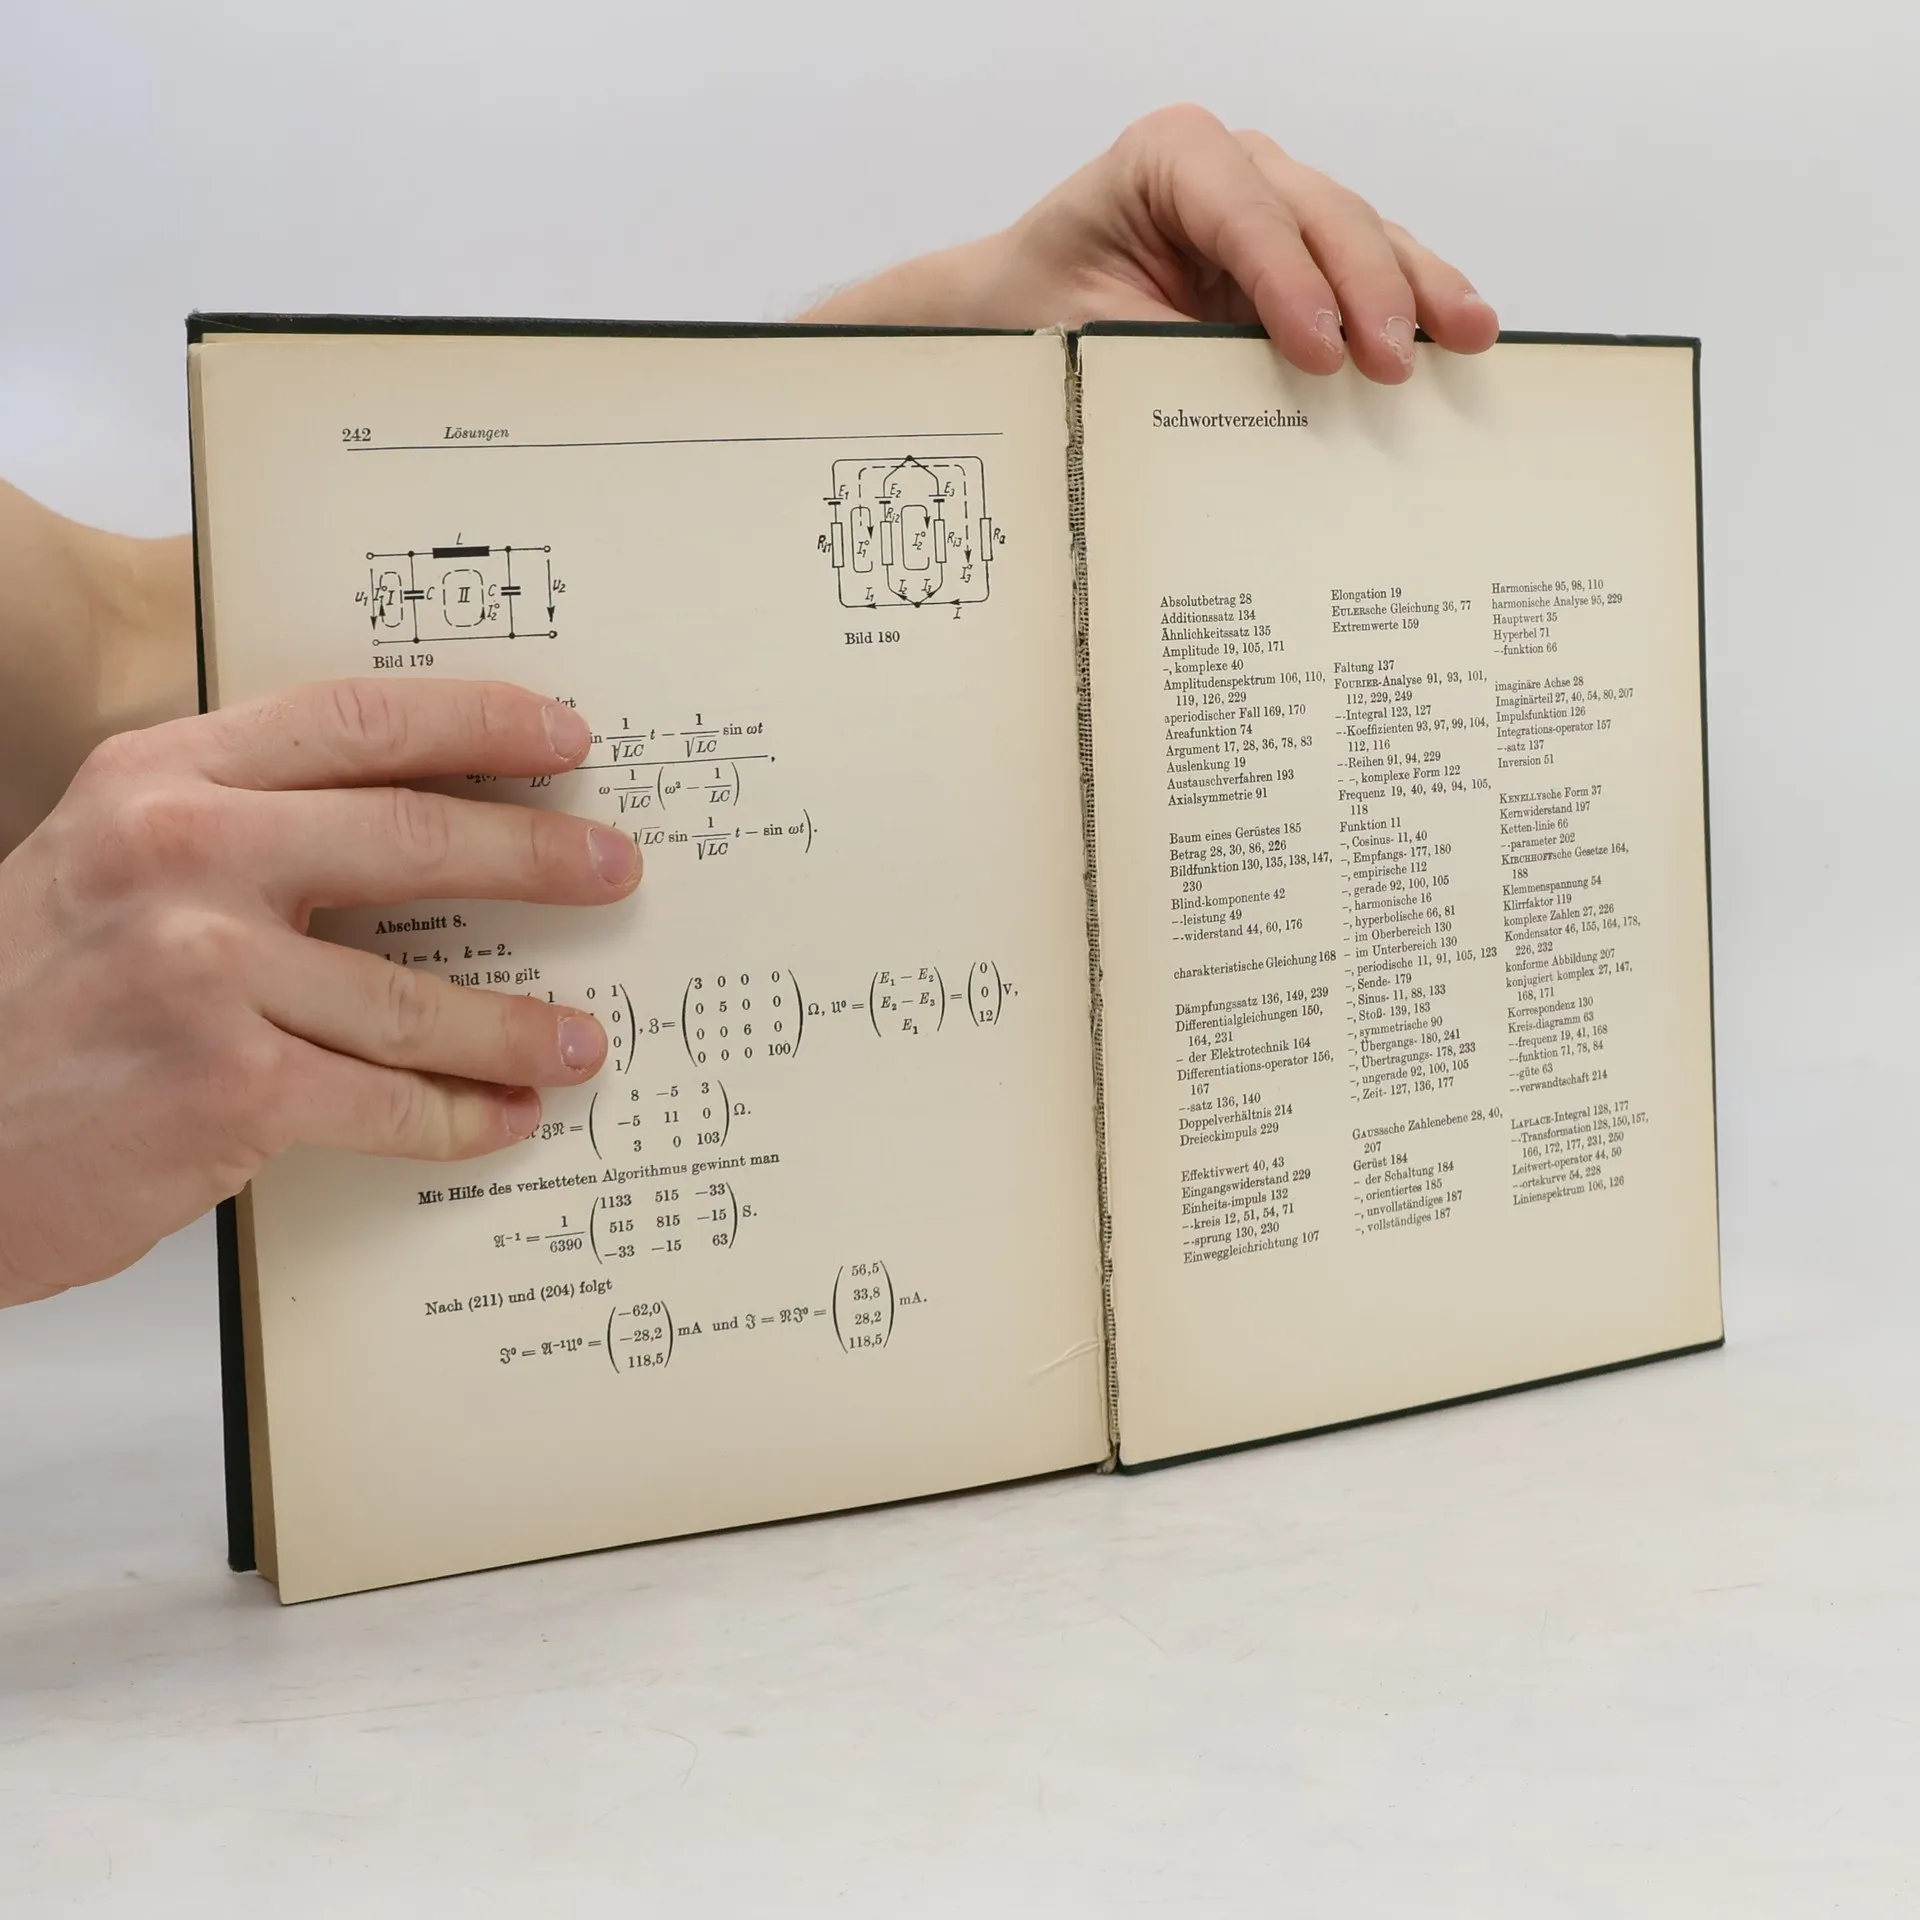 242 Lösungen
E1 E2 E3
Ri1 Ri2 Ri3 Ra
I1° I2° I3°
I1 I2 I3
I
Bild 180
L
u1 I1° I C II C I2° u2
Bild 179
1/√LC t − 1/√LC sin ωt
LC
ω 1/√LC (ω² − 1/LC) ,
√LC sin 1/√LC t − sin ωt).
Abschnitt 8.
l = 4, k = 2.
Bild 180 gilt
1 0 1
0
0
1
, ℨ =
3 0 0 0
0 5 0 0
0 0 6 0
0 0 0 100
Ω, 𝔘⁰ =
E1 − E2
E2 − E3
E1
=
0
0
12
V,
ℨ𝔑 =
8 −5 3
−5 11 0
3 0 103
Ω.
Mit Hilfe des verketteten Algorithmus gewinnt man
𝔄⁻¹ = 1/6390
1133 515 −33
515 815 −15
−33 −15 63
S.
Nach (211) und (204) folgt
ℑ⁰ = 𝔄⁻¹𝔘⁰ =
−62,0
−28,2
118,5
mA und ℑ = 𝔑ℑ⁰ =
56,5
33,8
28,2
118,5
mA.
Sachwortverzeichnis
Absolutbetrag 28
Additionssatz 134
Ähnlichkeitssatz 135
Amplitude 19, 105, 171
–, komplexe 40
Amplitudenspektrum 106, 110,
119, 126, 229
aperiodischer Fall 169, 170
Areafunktion 74
Argument 17, 28, 36, 78, 83
Auslenkung 19
Austauschverfahren 193
Axialsymmetrie 91
Baum eines Gerüstes 185
Betrag 28, 30, 86, 226
Bildfunktion 130, 135, 138, 147,
230
Blind-komponente 42
--leistung 49
--widerstand 44, 60, 176
charakteristische Gleichung 168
Dämpfungssatz 136, 149, 239
Differentialgleichungen 150,
164, 231
– der Elektrotechnik 164
Differentiations-operator 156,
167
--satz 136, 140
Doppelverhältnis 214
Dreieckimpuls 229
Effektivwert 40, 43
Eingangswiderstand 229
Einheits-impuls 132
--kreis 12, 51, 54, 71
--sprung 130, 230
Einweggleichrichtung 107
Elongation 19
EULERsche Gleichung 36, 77
Extremwerte 159
Faltung 137
FOURIER-Analyse 91, 93, 101,
112, 229, 249
--Integral 123, 127
--Koeffizienten 93, 97, 99, 104,
112, 116
--Reihen 91, 94, 229
– –, komplexe Form 122
Frequenz 19, 40, 49, 94, 105,
118
Funktion 11
–, Cosinus- 11, 40
–, Empfangs- 177, 180
–, empirische 112
–, gerade 92, 100, 105
–, harmonische 16
–, hyperbolische 66, 81
– im Oberbereich 130
– im Unterbereich 130
–, periodische 11, 91, 105, 123
–, Sende- 179
–, Sinus- 11, 88, 133
–, Stoß- 139, 183
–, symmetrische 90
–, Übergangs- 180, 241
–, Übertragungs- 178, 233
–, ungerade 92, 100, 105
–, Zeit- 127, 136, 177
GAUSSsche Zahlenebene 28, 40,
207
Gerüst 184
– der Schaltung 184
–, orientiertes 185
–, unvollständiges 187
–, vollständiges 187
Harmonische 95, 98, 110
harmonische Analyse 95, 229
Hauptwert 35
Hyperbel 71
--funktion 66
imaginäre Achse 28
Imaginärteil 27, 40, 54, 80, 207
Impulsfunktion 126
Integrations-operator 157
--satz 137
Inversion 51
KENELLYsche Form 37
Kernwiderstand 197
Ketten-linie 66
--parameter 202
KIRCHHOFFsche Gesetze 164,
188
Klemmenspannung 54
Klirrfaktor 119
komplexe Zahlen 27, 226
Kondensator 46, 155, 164, 178,
226, 232
konforme Abbildung 207
konjugiert komplex 27, 147,
168, 171
Korrespondenz 130
Kreis-diagramm 63
--frequenz 19, 41, 168
--funktion 71, 78, 84
--güte 63
--verwandtschaft 214
LAPLACE-Integral 128, 177
--Transformation 128, 150, 157,
166, 172, 177, 231, 250
Leitwert-operator 44, 50
--ortskurve 54, 228
Linienspektrum 106, 126